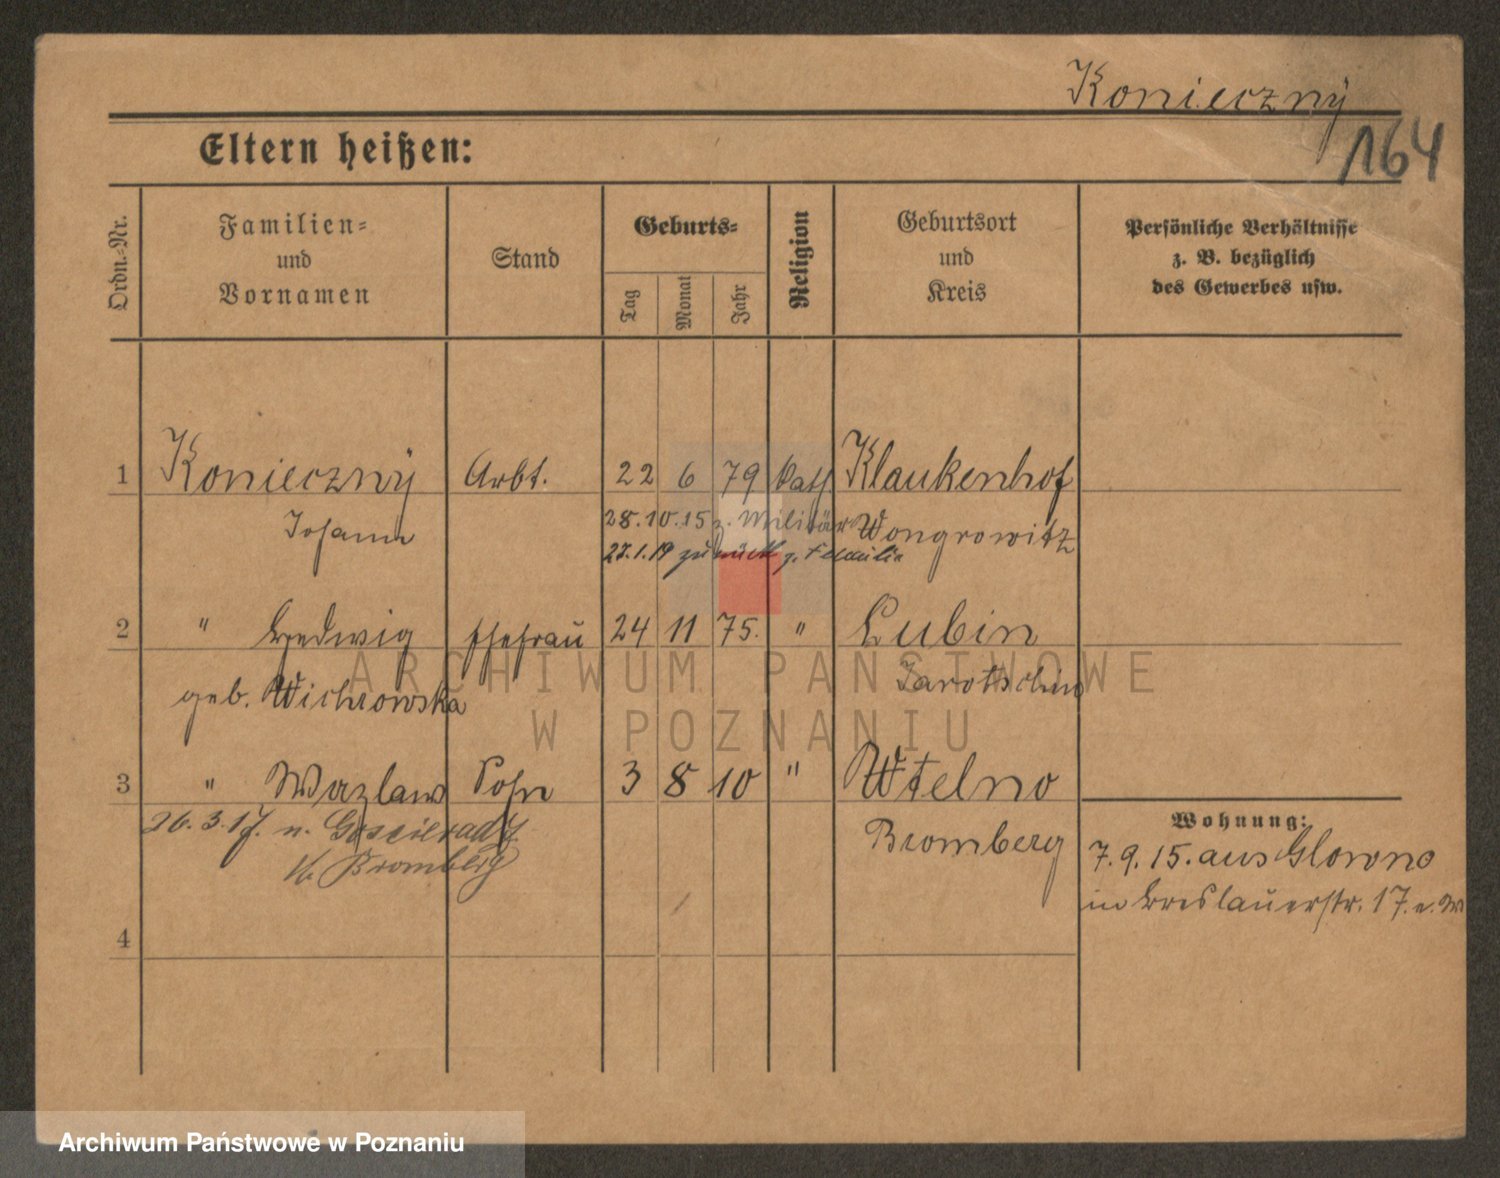 Konieczný
164
Eltern heißen:
Ordn.-Nr.
Familien-
und
Vornamen
Stand
Geburts-
Tag
Monat
Jahr
Religion
Geburtsort
und
Kreis
Persönliche Verhältnisse
z. B. bezüglich
des Gewerbes usw.
1 Konieczný Arbt. 22 6 79 kath Klaukenhof
Johann 28.10.15 z. Militär Wongrowitz
27.1.19 zurück z. Familie
2 " Hedwig Ehefrau 24 11 75. " Lubin
geb. Wichrowska Jarotschin
3 " Wazlaw Sohn 3 8 10 " Wtelno
26.3.17. n. Bromberg
Kr. Bromberg
Wohnung:
7.9.15. aus Glowno
in Breslauerstr. 17.
4
ARCHIWUM PAŃSTWOWE
W POZNANIU
Archiwum Państwowe w Poznaniu